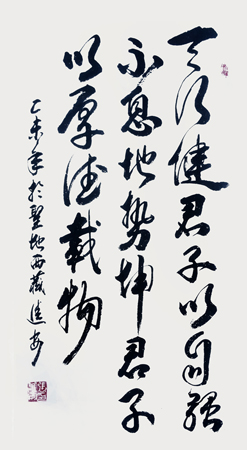 天行健君子以自强
不息地势坤君子
以厚德载物
乙未年於聖地西藏